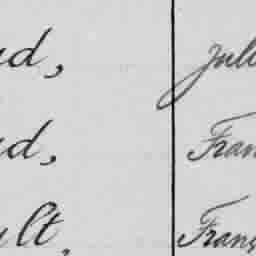 ud, Juli
ud, Fran
ult, Franç